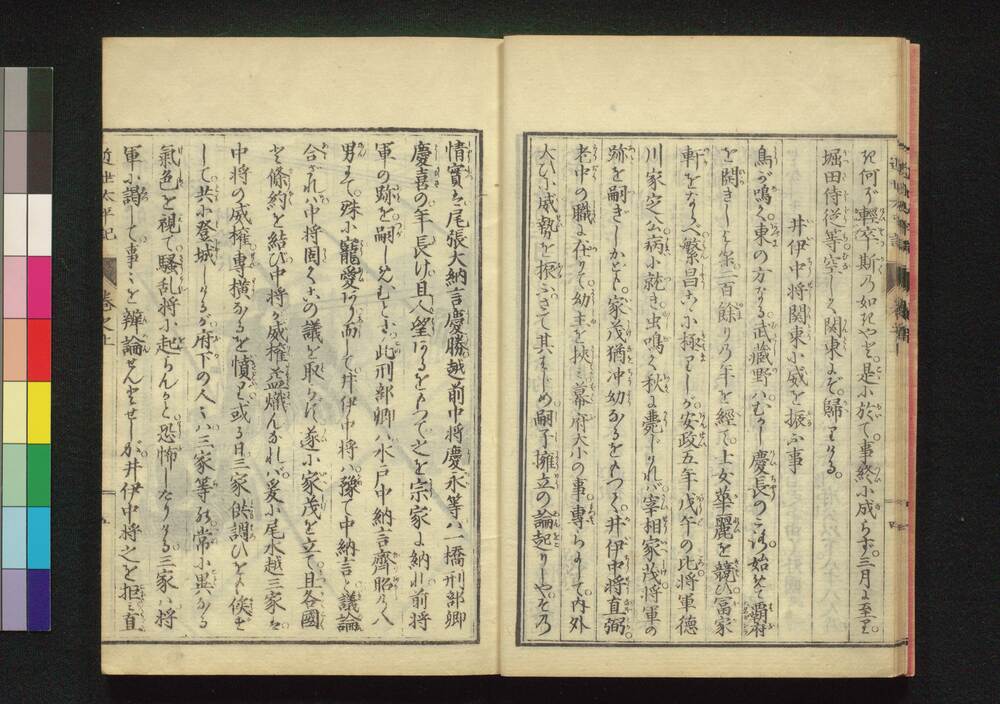 きに何ぞ輕卒斯の如きやと是に於て事終に成らず三月に至り
堀田侍従等空しく関東にぞ歸りける
井伊中将関東に威を振ふ事
鳥が鳴く東の方なる武蔵野ハむかし慶長のころ始めて覇府
を開きしより二百餘りの年を經て士女華麗を競ひ冨家
軒をならべ繁昌こゝに極りしが安政五年戊午の比将軍徳
川家定公病に就き虫鳴く秋に薨じければ宰相家茂将軍の
跡を嗣ぎしかども家茂猶冲幼なるをもつて井伊中将直弼
老中の職に在りて幼主を挾ミ幕府大小の事専らにして内外
大ひに威勢を振ふさて其はじめ嗣子擁立の論起りしやその
情實は尾張大納言慶勝越前中将慶永等ハ一橋刑部卿
慶喜の年長け且人望あるをもつて之を宗家に納れ前将
軍の跡を嗣しめむとす此刑部卿ハ水戸中納言齊昭の八
男にて殊に寵愛あり而して井伊中将ハ豫て中納言と議論
合ざれバ中将固くこの議を取らず遂に家茂を立て且各國
と條約を結び中将が威権益熾んなれバ爰に尾水越三家は
中将の威権専横なるを憤り或る日三家供調ひをも俟ず
して共に登城しけるが府下の人々ハ三家等の常に異なる
氣色を視て騒乱将に起らんかと恐怖しあへりける三家ハ将
軍に謁して事々を辨論せんとせしが井伊中将之を拒ミ直
近世太平記
巻之上
五